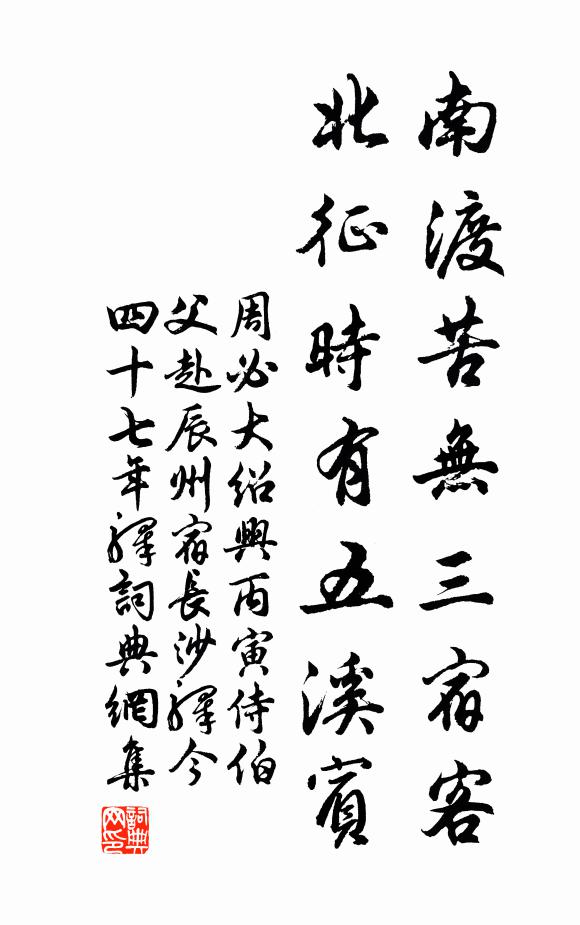 南渡苦無三宿客
北征時有五溪賓
周必大紹興丙寅侍伯
父赴辰州宿長沙驛今
四十七年驛詞典網集
詞典
网印